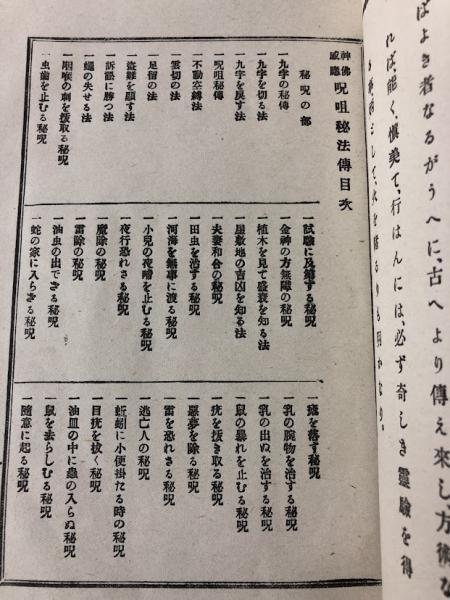 ばよき者なるがうへに、古へより傳え來し方術な
れば、能く、愼美て、行はんには、必ず奇しき靈驗を得
神佛感應 呪咀秘法傳目次
秘呪の部
一九字の秘傳
一九字を切る法
一九字を戻す法
一呪咀秘傳
一不動空縛法
一雲切の法
一足留の法
一盗難を顯す法
一訴訟に勝つ法
一蠅の失せる法
一咽喉の刺を拔取る秘呪
一虫齒を止むる秘呪
一試驗に及第する秘呪
一金神の方無障の秘呪
一植木を見て盛衰を知る法
一屋敷地の吉凶を知る法
一夫妻和合の秘呪
一田虫を治する秘呪
一河海を無事に渡る秘呪
一小兒の夜嗜を止むる秘呪
一夜行恐れさる秘呪
一魔除の秘呪
一雷除の秘呪
一油虫の出できる秘呪
一蛇の家に入らさる秘呪
一瘧を落す秘呪
一乳の腕物を治する秘呪
一乳の出ぬを治する秘呪
一鼠の暴れを止むる秘呪
一疣を拔き取る秘呪
一惡夢を除る秘呪
一雷を恐れさる秘呪
一逃亡人の秘呪
一蚯蚓に小便掛たる時の秘呪
一目疣を拔く秘呪
一油皿の中に蟲の入らぬ秘呪
一鼠を去らしむる秘呪
一隨意に起る秘呪